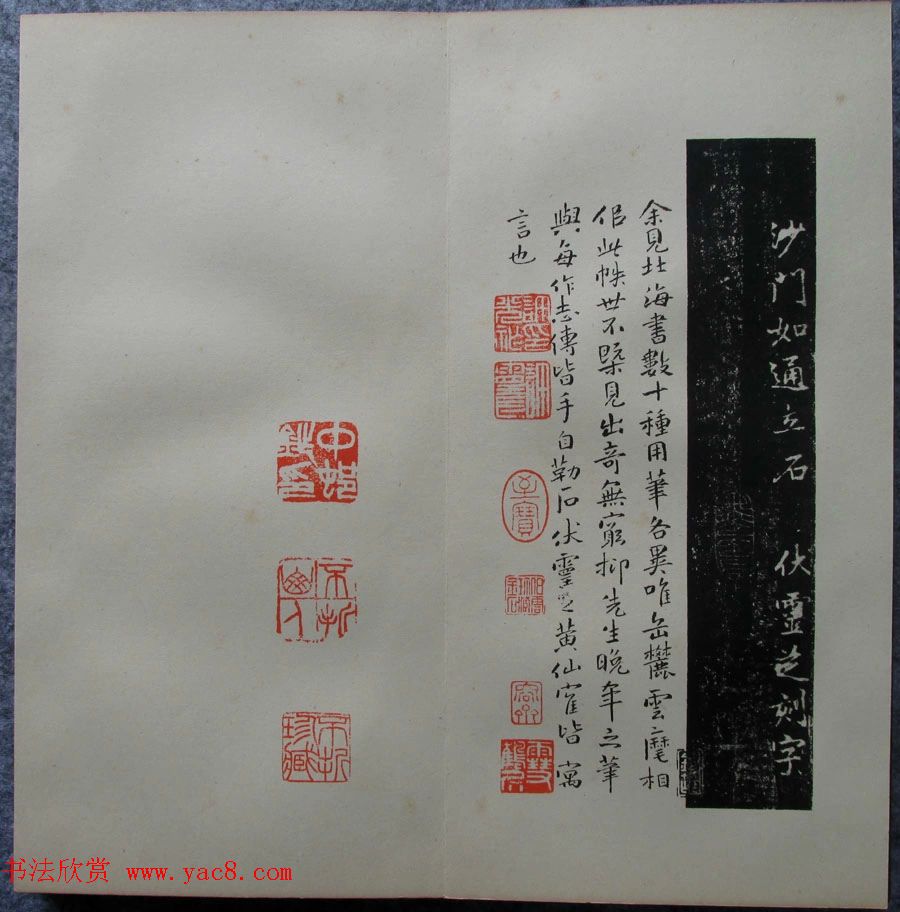 沙門如通立石 伏靈芝刻字
余見北海書數十種用筆各異唯岳麓雲麾相
侣此帙世不槩見出奇無窮抑先生晚年之筆
與每作志傳皆手自勒石伏靈芝黄仙寉皆寓
言也
中邨
不折
不折珍藏
书法欣赏 www.yac8.com